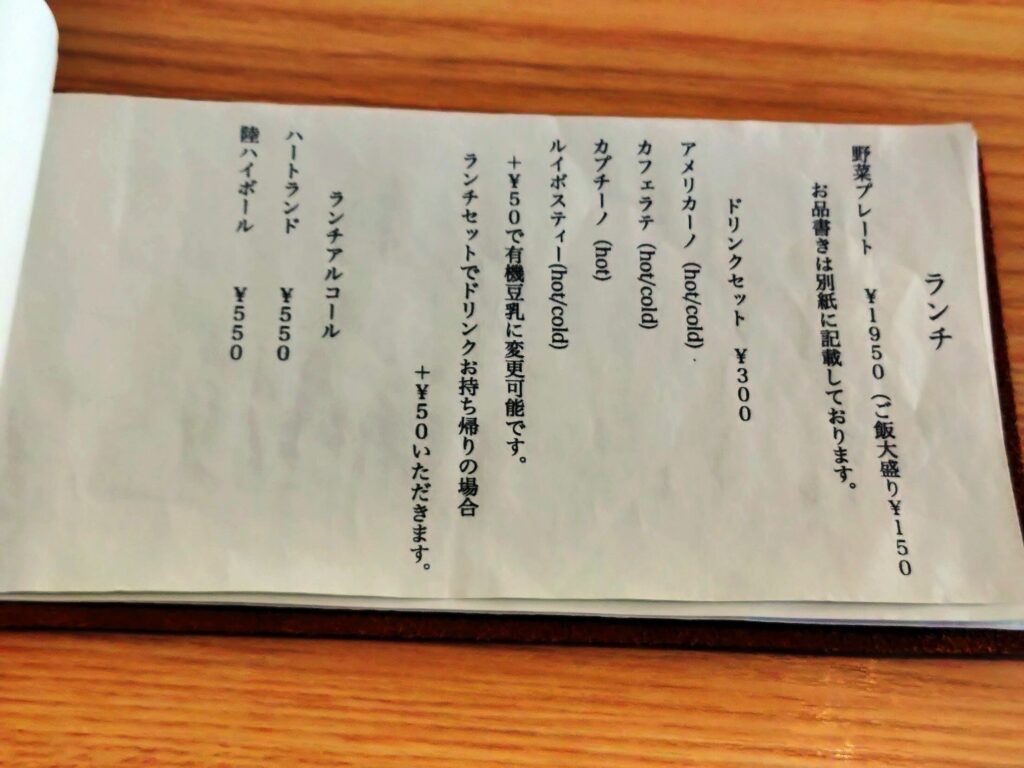 ランチ
野菜プレート ¥1950 (ご飯大盛り¥150
お品書きは別紙に記載しております。
ドリンクセット ¥300
アメリカーノ (hot/cold)
カフェラテ (hot/cold)
カプチーノ (hot)
ルイボスティー(hot/cold)
+¥50で有機豆乳に変更可能です。
ランチセットでドリンクお持ち帰りの場合
+¥50いただきます。
ランチアルコール
ハートランド ¥550
陸ハイボール ¥550